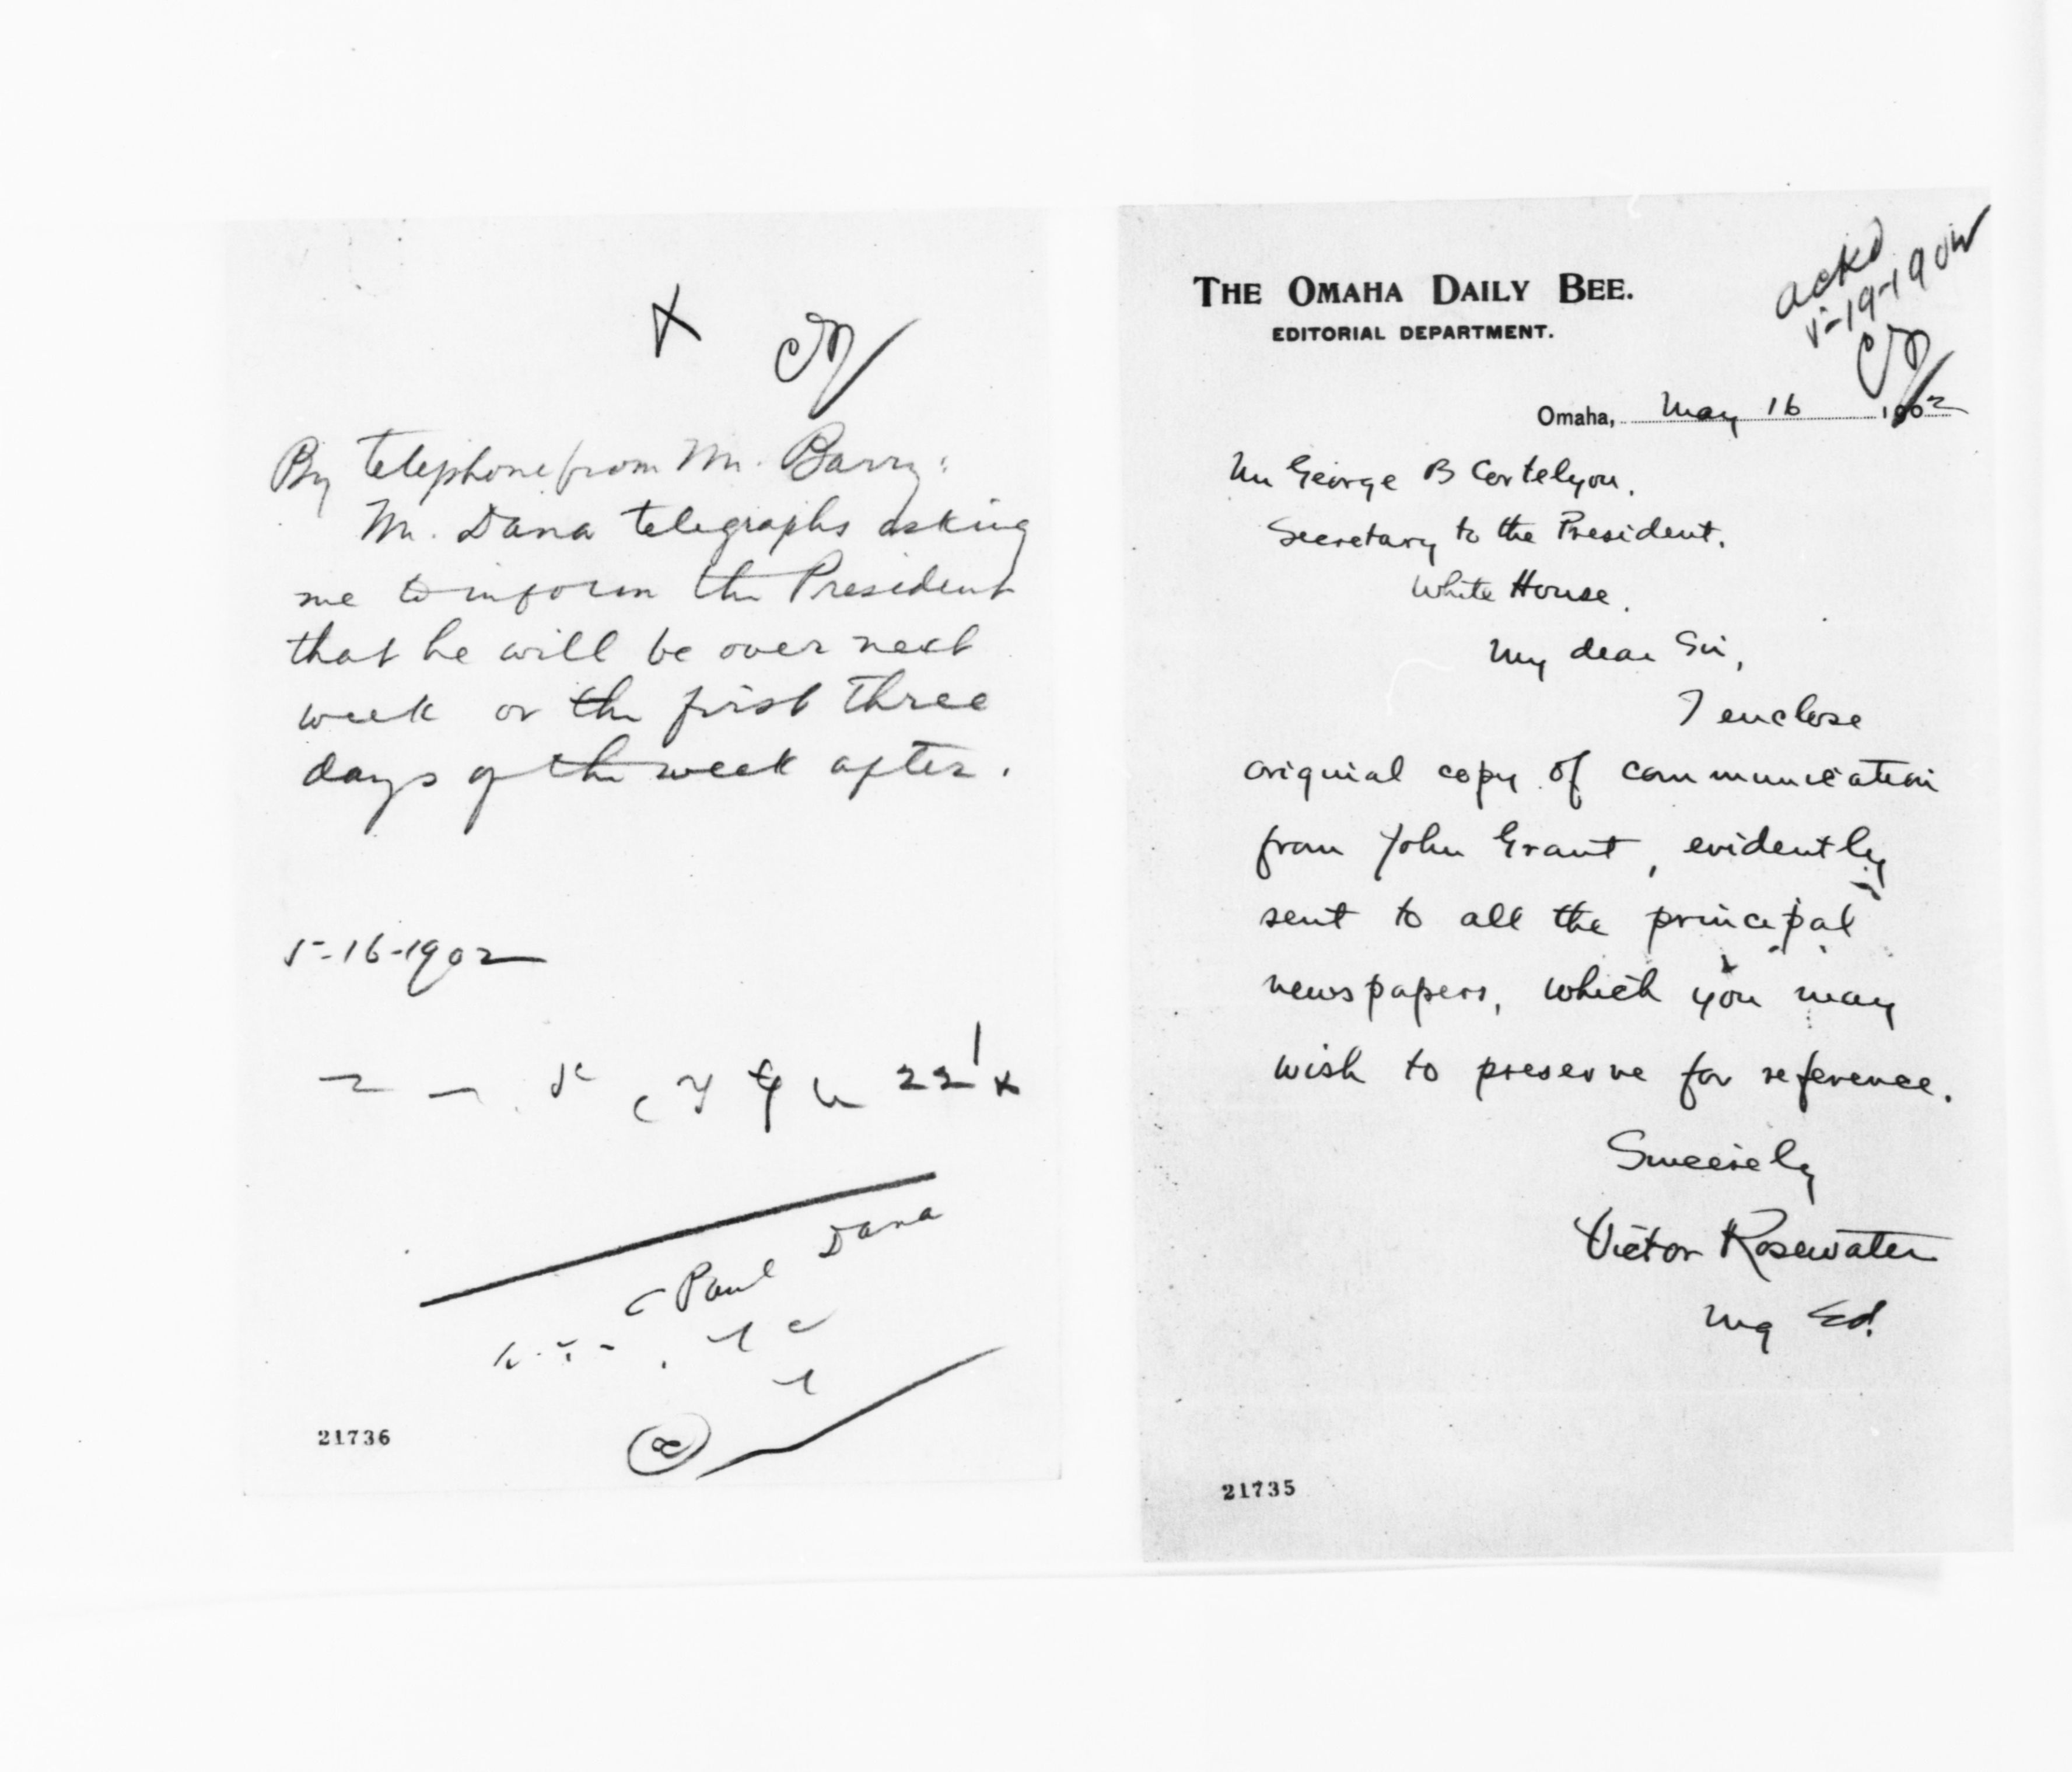 X
By telephone from Mr. Barry:
Mr. Dana telegraphs asking
me to inform the President
that he will be over next
week or the first three
days of the week after.
5-16-1902
22
Paul Dana
21736
ackd
5-19-1902
THE OMAHA DAILY BEE.
EDITORIAL DEPARTMENT.
Omaha, May 16 1902
Mr George B Cortelyou.
Secretary to the President.
White House.
My dear Sir,
I enclose
original copy of communication
from John Grant, evidently
sent to all the principal
newspapers, which you may
wish to preserve for reference.
Sincerely
Victor Rosewater
Mg Ed.
21735